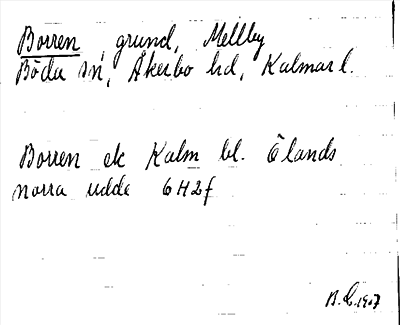 Borren, grund, Mellby
Böda sn, Åkerbo hd, Kalmar l.
Borren ek Kalm bl. Ölands
norra udde 6H2f